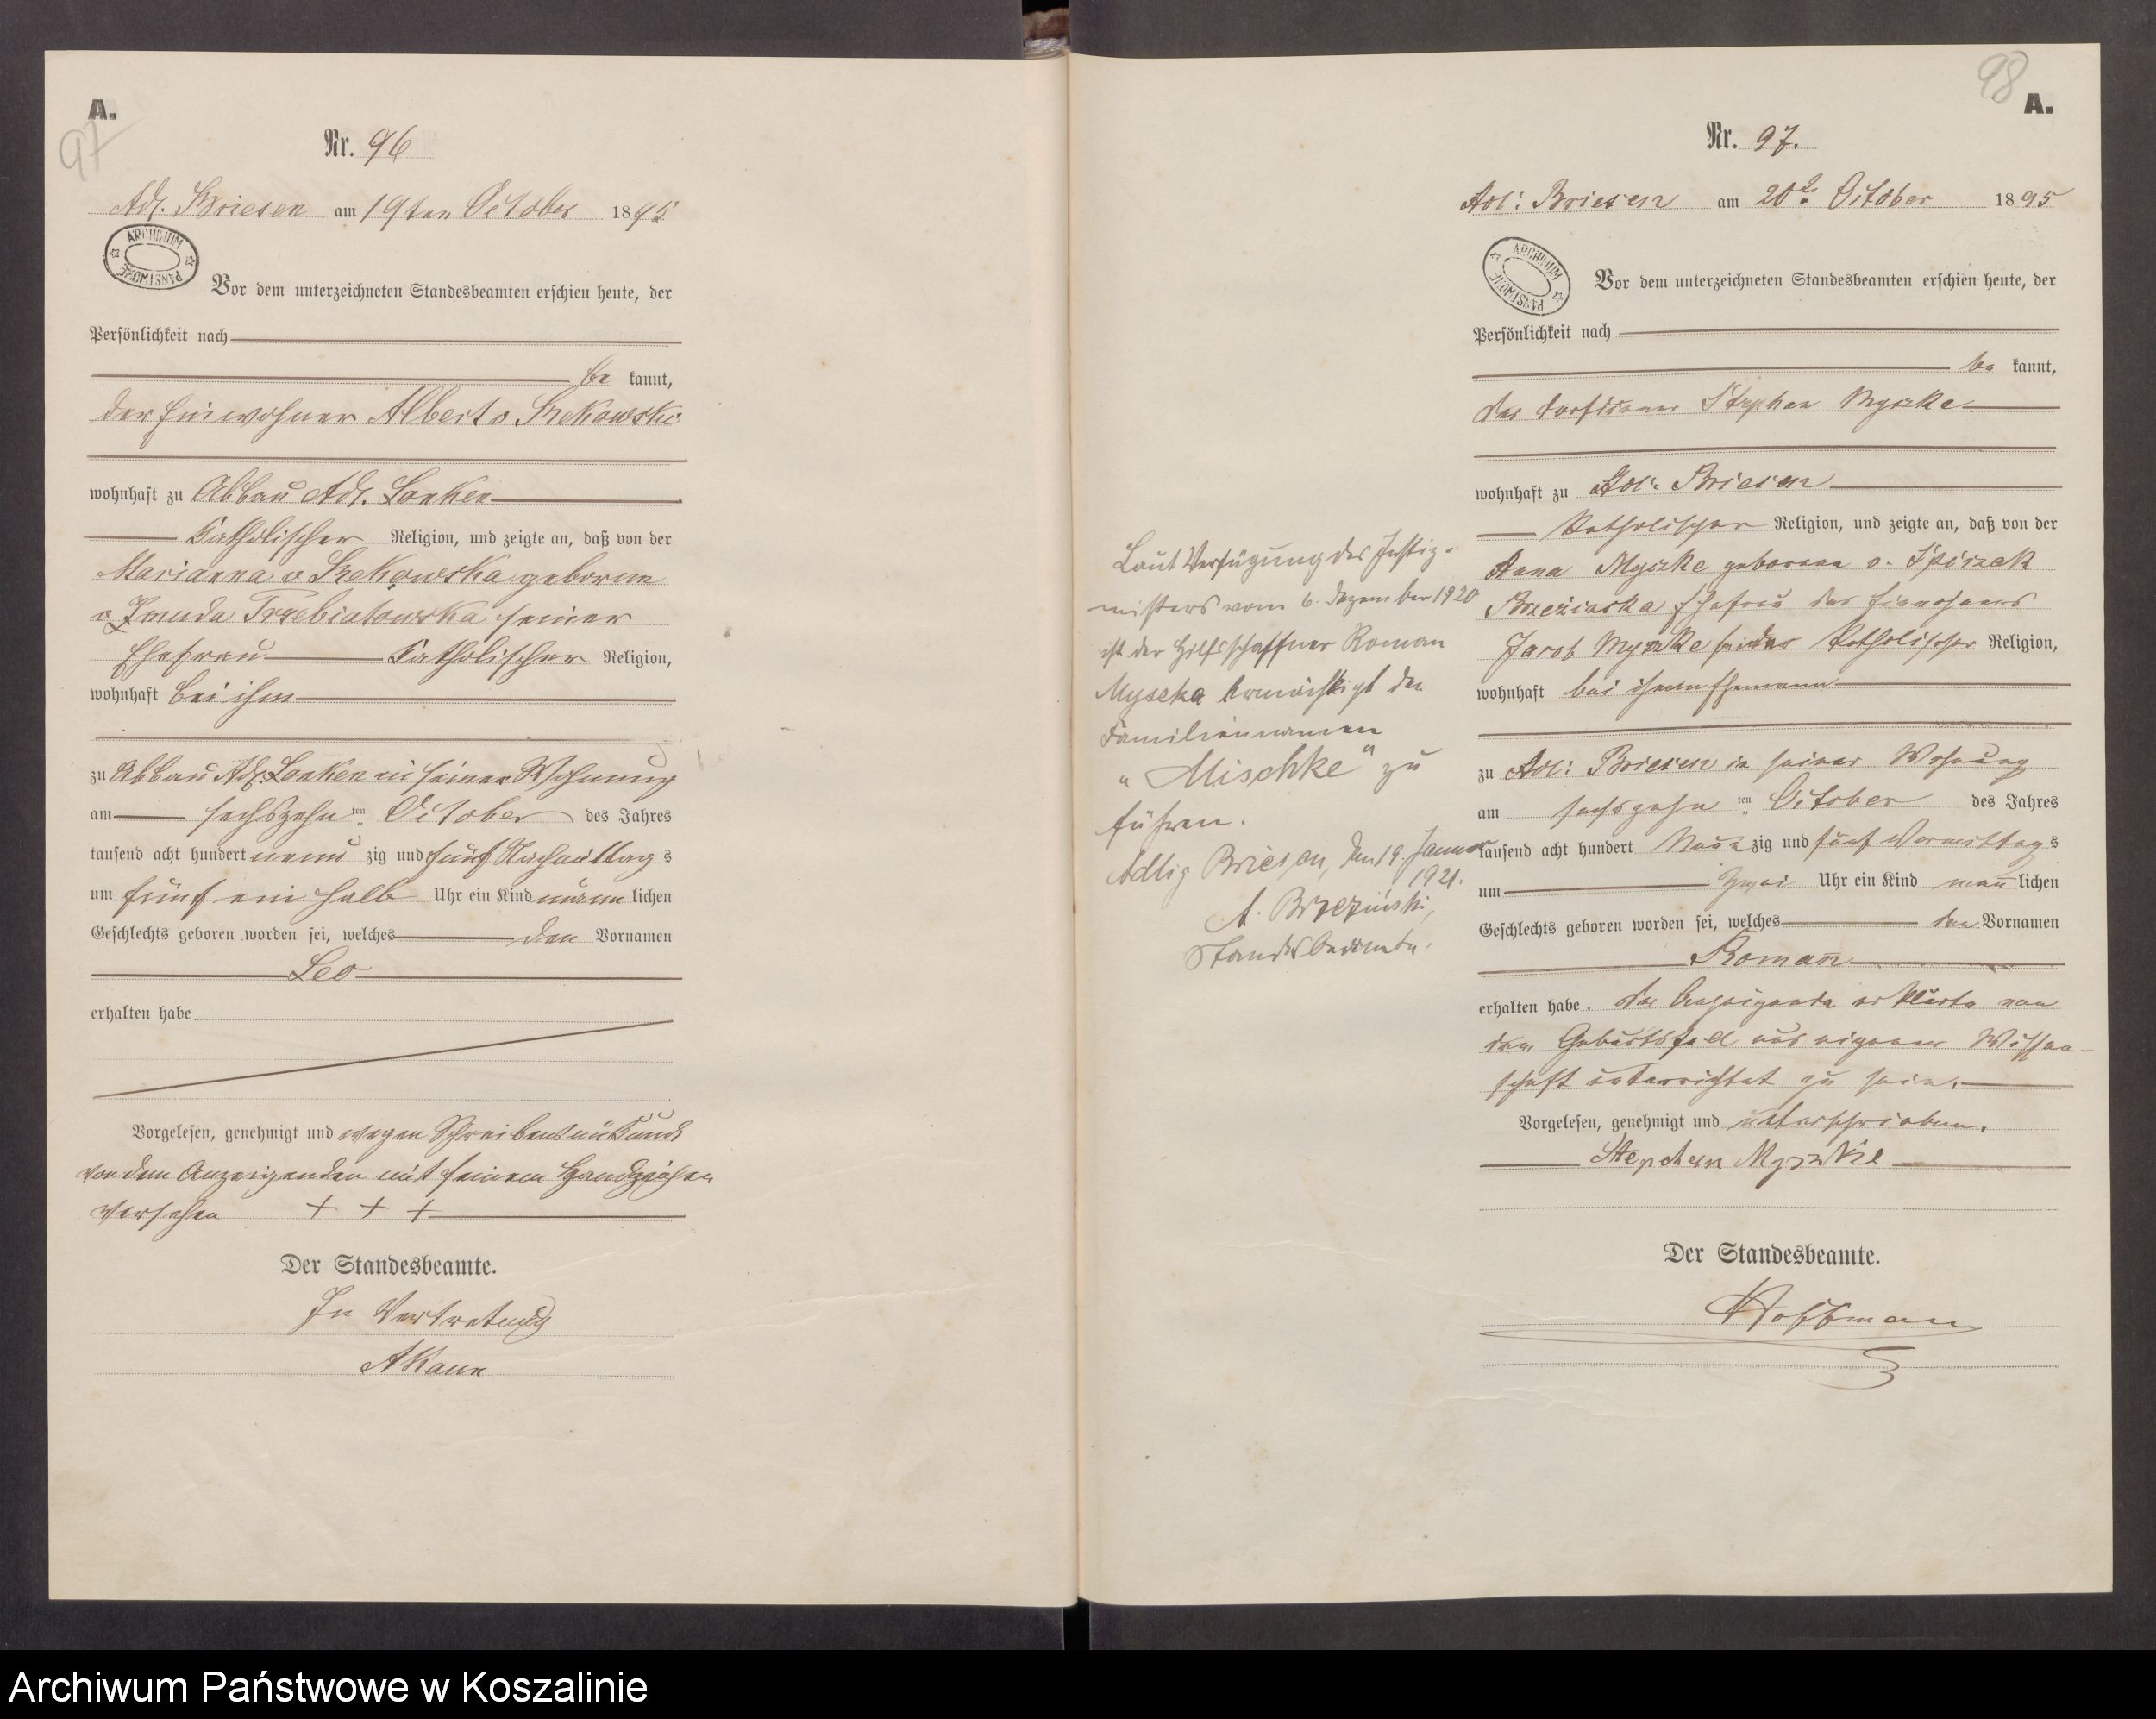 A.
97
Nr. 96
Adl. Briesen am 19ten October 1895
ARCHIWUM PAŃSTWOWE
Vor dem unterzeichneten Standesbeamten erschien heute, der
Persönlichkeit nach
be kannt,
der Einwohner Albert v Rekowski
wohnhaft zu Abbau Adl. Lonken
Katholischer Religion, und zeigte an, daß von der
Marianna v Rekowska geborene
v Zmuda Trzebiatowska seiner
Ehefrau Katholischer Religion,
wohnhaft bei ihm
zu Abbau Adl. Lonken in seiner Wohnung
am sechszehn ten October des Jahres
tausend acht hundert neun zig und fünf Nachmittag s
um fünf ein halb Uhr ein Kind männ lichen
Geschlechts geboren worden sei, welches den Vornamen
Leo
erhalten habe
Vorgelesen, genehmigt und wegen Schreibensunkunde
von dem Anzeigenden mit seinem Handzeichen
versehen + + +
Der Standesbeamte.
In Vertretung
98
A.
Nr. 97.
Adl: Briesen am 20t October 1895
ARCHIWUM PAŃSTWOWE
Vor dem unterzeichneten Standesbeamten erschien heute, der
Persönlichkeit nach
be kannt,
der Stephan Myszke
wohnhaft zu Adl: Briesen
Katholischer Religion, und zeigte an, daß von der
Anna Myszke geborene v. Spiczak
Brzezinska Ehefrau des Einwohners
Jacob Myszke Katholischer Religion,
wohnhaft bei ihrem Ehemann
zu Adl: Briesen in seiner Wohnung
am sechszehn ten October des Jahres
tausend acht hundert Neun zig und fünf Vormittag s
um Zwei Uhr ein Kind männ lichen
Geschlechts geboren worden sei, welches den Vornamen
Roman
erhalten habe. Der Anzeigende erklärte von
dem Geburtsfall aus eigener Wissen-
schaft unterrichtet zu sein.
Vorgelesen, genehmigt und unterschrieben.
Stephan Myszke
Der Standesbeamte.
Hoffman
Laut Verfügung des Justiz-
ministers vom 6. Dezember 1920
ist der Hilfsschaffner Roman
Myszka ermächtigt den
Familiennamen
„Mischke" zu
führen.
Adlig Briesen, den 19. Januar
1921.
A. Brzezinski,
Standesbeamte.
Archiwum Państwowe w Koszalinie